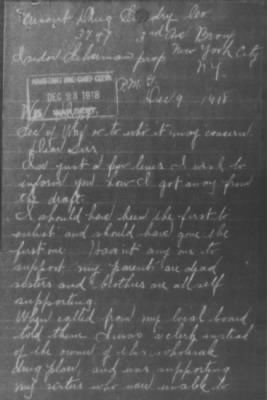 Drug Co
3747 3rd Ave Bronx
New York City
Isidor Scherman prop
N.Y.
DEC 23 1918
Dec 9 1918
Sec of War or to who it may concern
Dear Sirs
Am just a few lines I wish to
inform you how I got away from
the draft.
I should have been the first to
enlist and should have gone the
first one Havent any one to
support my parents are dead
sisters and brothers are all self
supporting.
When called from my local board
told them I was a clerk instead
of the owner of this wholesale
drug place, and was supporting
my sisters who were unable to